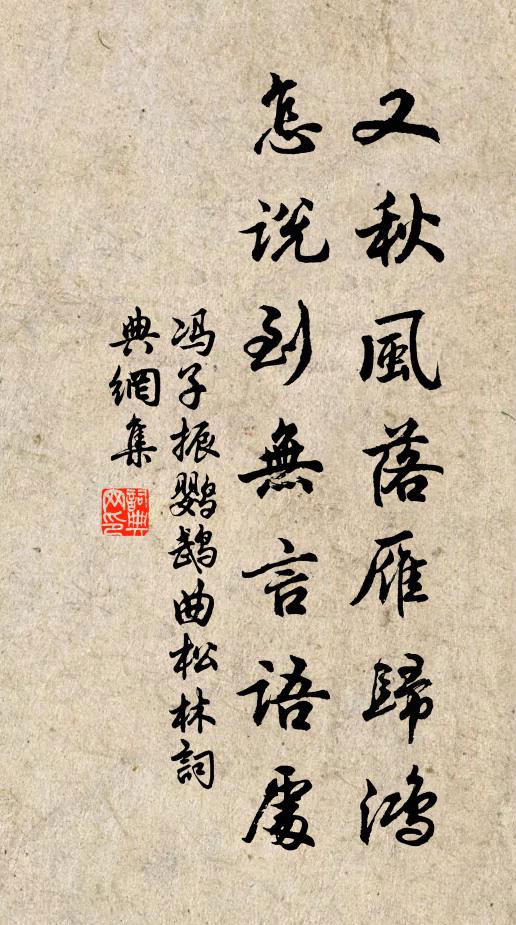 又秋風落雁歸鴻
怎说到無言語處
冯子振鹦鹉曲松林詞
典網集
詞典網印